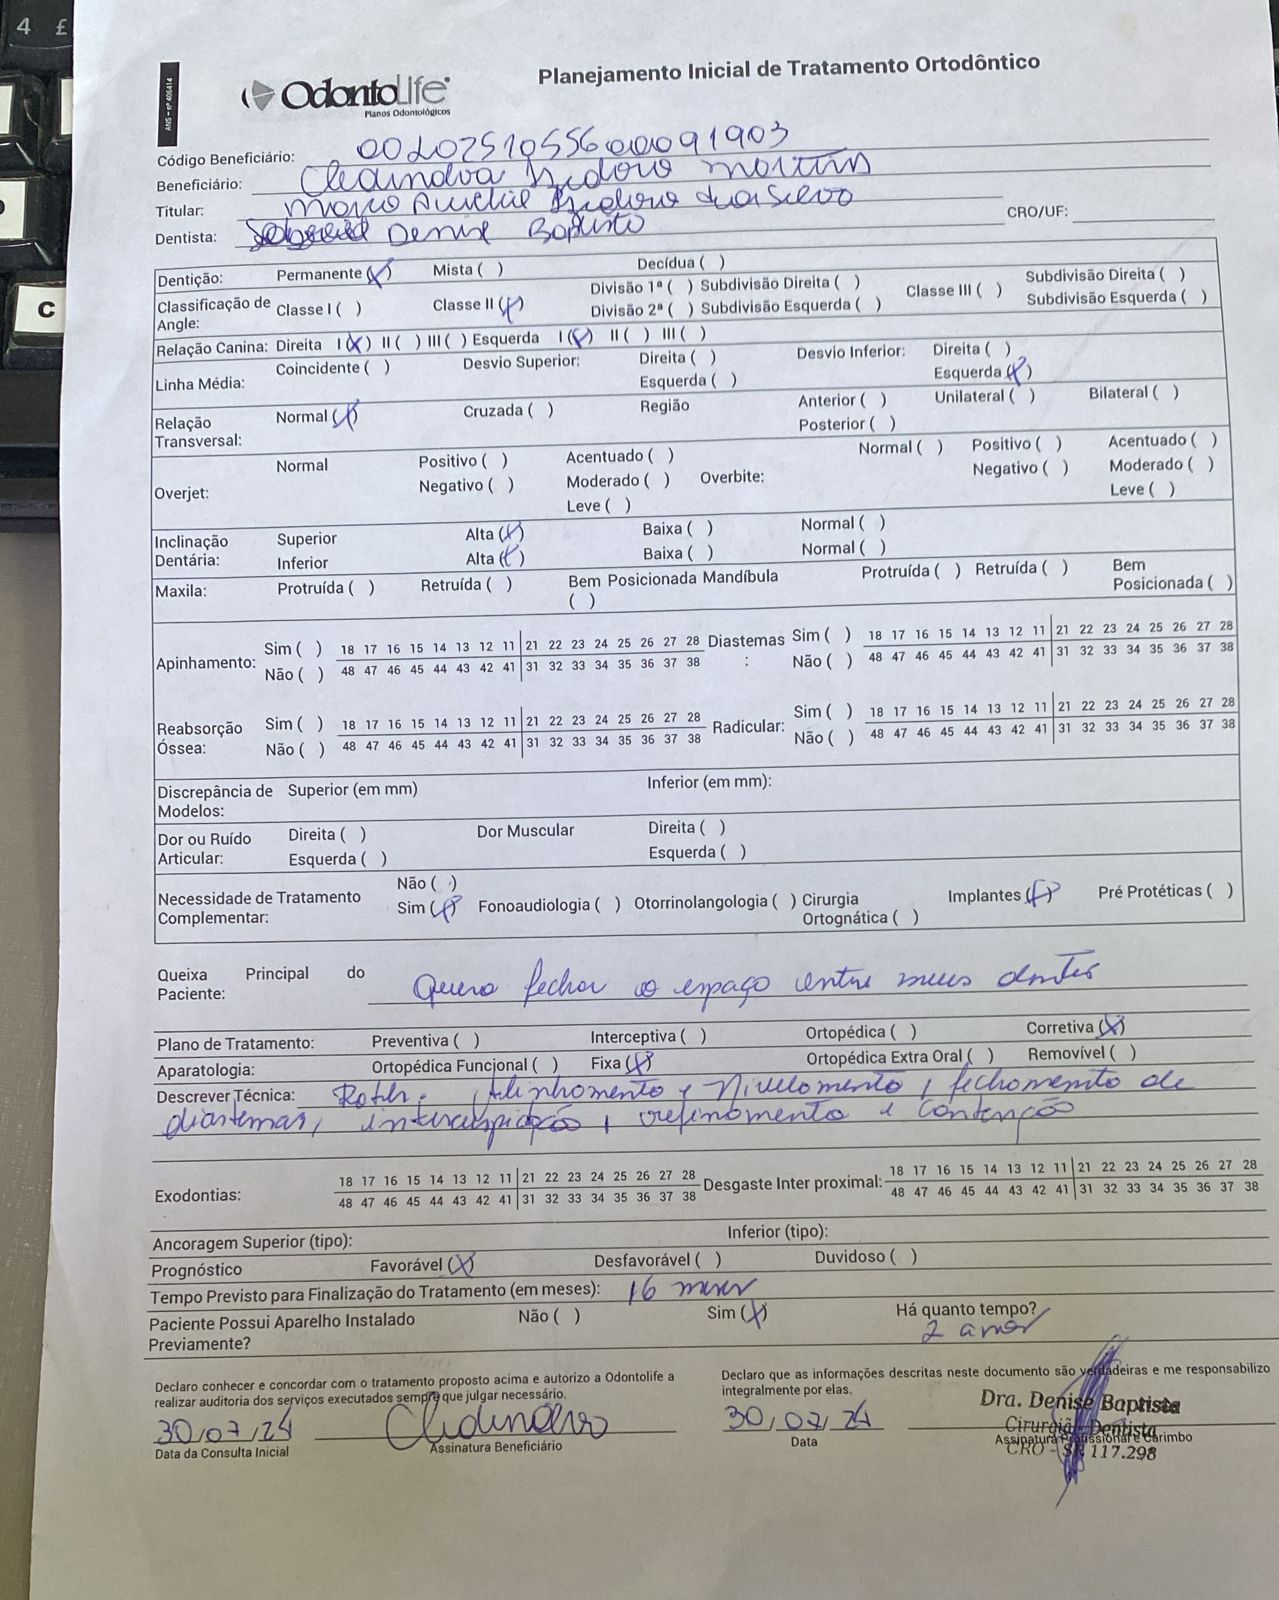 4 £
C
ANS - nº 406414
OdontoLife
Planos Odontológicos
Planejamento Inicial de Tratamento Ortodôntico
Código Beneficiário:
Beneficiário:
Titular:
Dentista: Denise Baptista CRO/UF:
Dentição: Permanente (X) Mista ( ) Decídua ( )
Classificação de Angle: Classe I ( ) Classe II (X) Divisão 1ª ( ) Subdivisão Direita ( ) Classe III ( ) Subdivisão Direita ( )
Divisão 2ª ( ) Subdivisão Esquerda ( ) Subdivisão Esquerda ( )
Relação Canina: Direita I (X) II ( ) III ( ) Esquerda I (X) II ( ) III ( )
Linha Média: Coincidente ( ) Desvio Superior: Direita ( ) Desvio Inferior: Direita ( )
Esquerda ( ) Esquerda (X)
Relação Transversal: Normal (X) Cruzada ( ) Região Anterior ( ) Unilateral ( ) Bilateral ( )
Posterior ( )
Overjet: Normal Positivo ( ) Acentuado ( ) Overbite: Normal ( ) Positivo ( ) Acentuado ( )
Negativo ( ) Moderado ( ) Negativo ( ) Moderado ( )
Leve ( ) Leve ( )
Inclinação Dentária: Superior Alta (X) Baixa ( ) Normal ( )
Inferior Alta (X) Baixa ( ) Normal ( )
Maxila: Protruída ( ) Retruída ( ) Bem Posicionada Mandíbula ( ) Protruída ( ) Retruída ( ) Bem Posicionada ( )
Apinhamento: Sim ( ) 18 17 16 15 14 13 12 11 21 22 23 24 25 26 27 28 Diastemas : Sim ( ) 18 17 16 15 14 13 12 11 21 22 23 24 25 26 27 28
Não ( ) 48 47 46 45 44 43 42 41 31 32 33 34 35 36 37 38 Não ( ) 48 47 46 45 44 43 42 41 31 32 33 34 35 36 37 38
Reabsorção Óssea: Sim ( ) 18 17 16 15 14 13 12 11 21 22 23 24 25 26 27 28 Radicular: Sim ( ) 18 17 16 15 14 13 12 11 21 22 23 24 25 26 27 28
Não ( ) 48 47 46 45 44 43 42 41 31 32 33 34 35 36 37 38 Não ( ) 48 47 46 45 44 43 42 41 31 32 33 34 35 36 37 38
Discrepância de Modelos: Superior (em mm) Inferior (em mm):
Dor ou Ruído Articular: Direita ( ) Dor Muscular Direita ( )
Esquerda ( ) Esquerda ( )
Necessidade de Tratamento Complementar: Não ( )
Sim (X) Fonoaudiologia ( ) Otorrinolangologia ( ) Cirurgia Ortognática ( ) Implantes (X) Pré Protéticas ( )
Queixa Principal do Paciente: Quero fechar o espaço entre meus dentes
Plano de Tratamento: Preventiva ( ) Interceptiva ( ) Ortopédica ( ) Corretiva (X)
Aparatologia: Ortopédica Funcional ( ) Fixa (X) Ortopédica Extra Oral ( ) Removível ( )
Descrever Técnica: Roth. Alinhamento e Nivelamento, fechamento de
diastemas, intercuspidação, refinamento e contenção
Exodontias: 18 17 16 15 14 13 12 11 21 22 23 24 25 26 27 28 Desgaste Inter proximal: 18 17 16 15 14 13 12 11 21 22 23 24 25 26 27 28
48 47 46 45 44 43 42 41 31 32 33 34 35 36 37 38 48 47 46 45 44 43 42 41 31 32 33 34 35 36 37 38
Ancoragem Superior (tipo): Inferior (tipo):
Prognóstico Favorável (X) Desfavorável ( ) Duvidoso ( )
Tempo Previsto para Finalização do Tratamento (em meses): 16 meses
Paciente Possui Aparelho Instalado Previamente? Não ( ) Sim (X) Há quanto tempo?
2 anos
Declaro conhecer e concordar com o tratamento proposto acima e autorizo a Odontolife a
realizar auditoria dos serviços executados sempre que julgar necessário.
Declaro que as informações descritas neste documento são verdadeiras e me responsabilizo
integralmente por elas.
30/07/24
Data da Consulta Inicial
Assinatura Beneficiário
30/07/24
Data
Dra. Denise Baptista
Cirurgiã - Dentista
Assinatura Profissional e Carimbo
CRO - SP 117.298